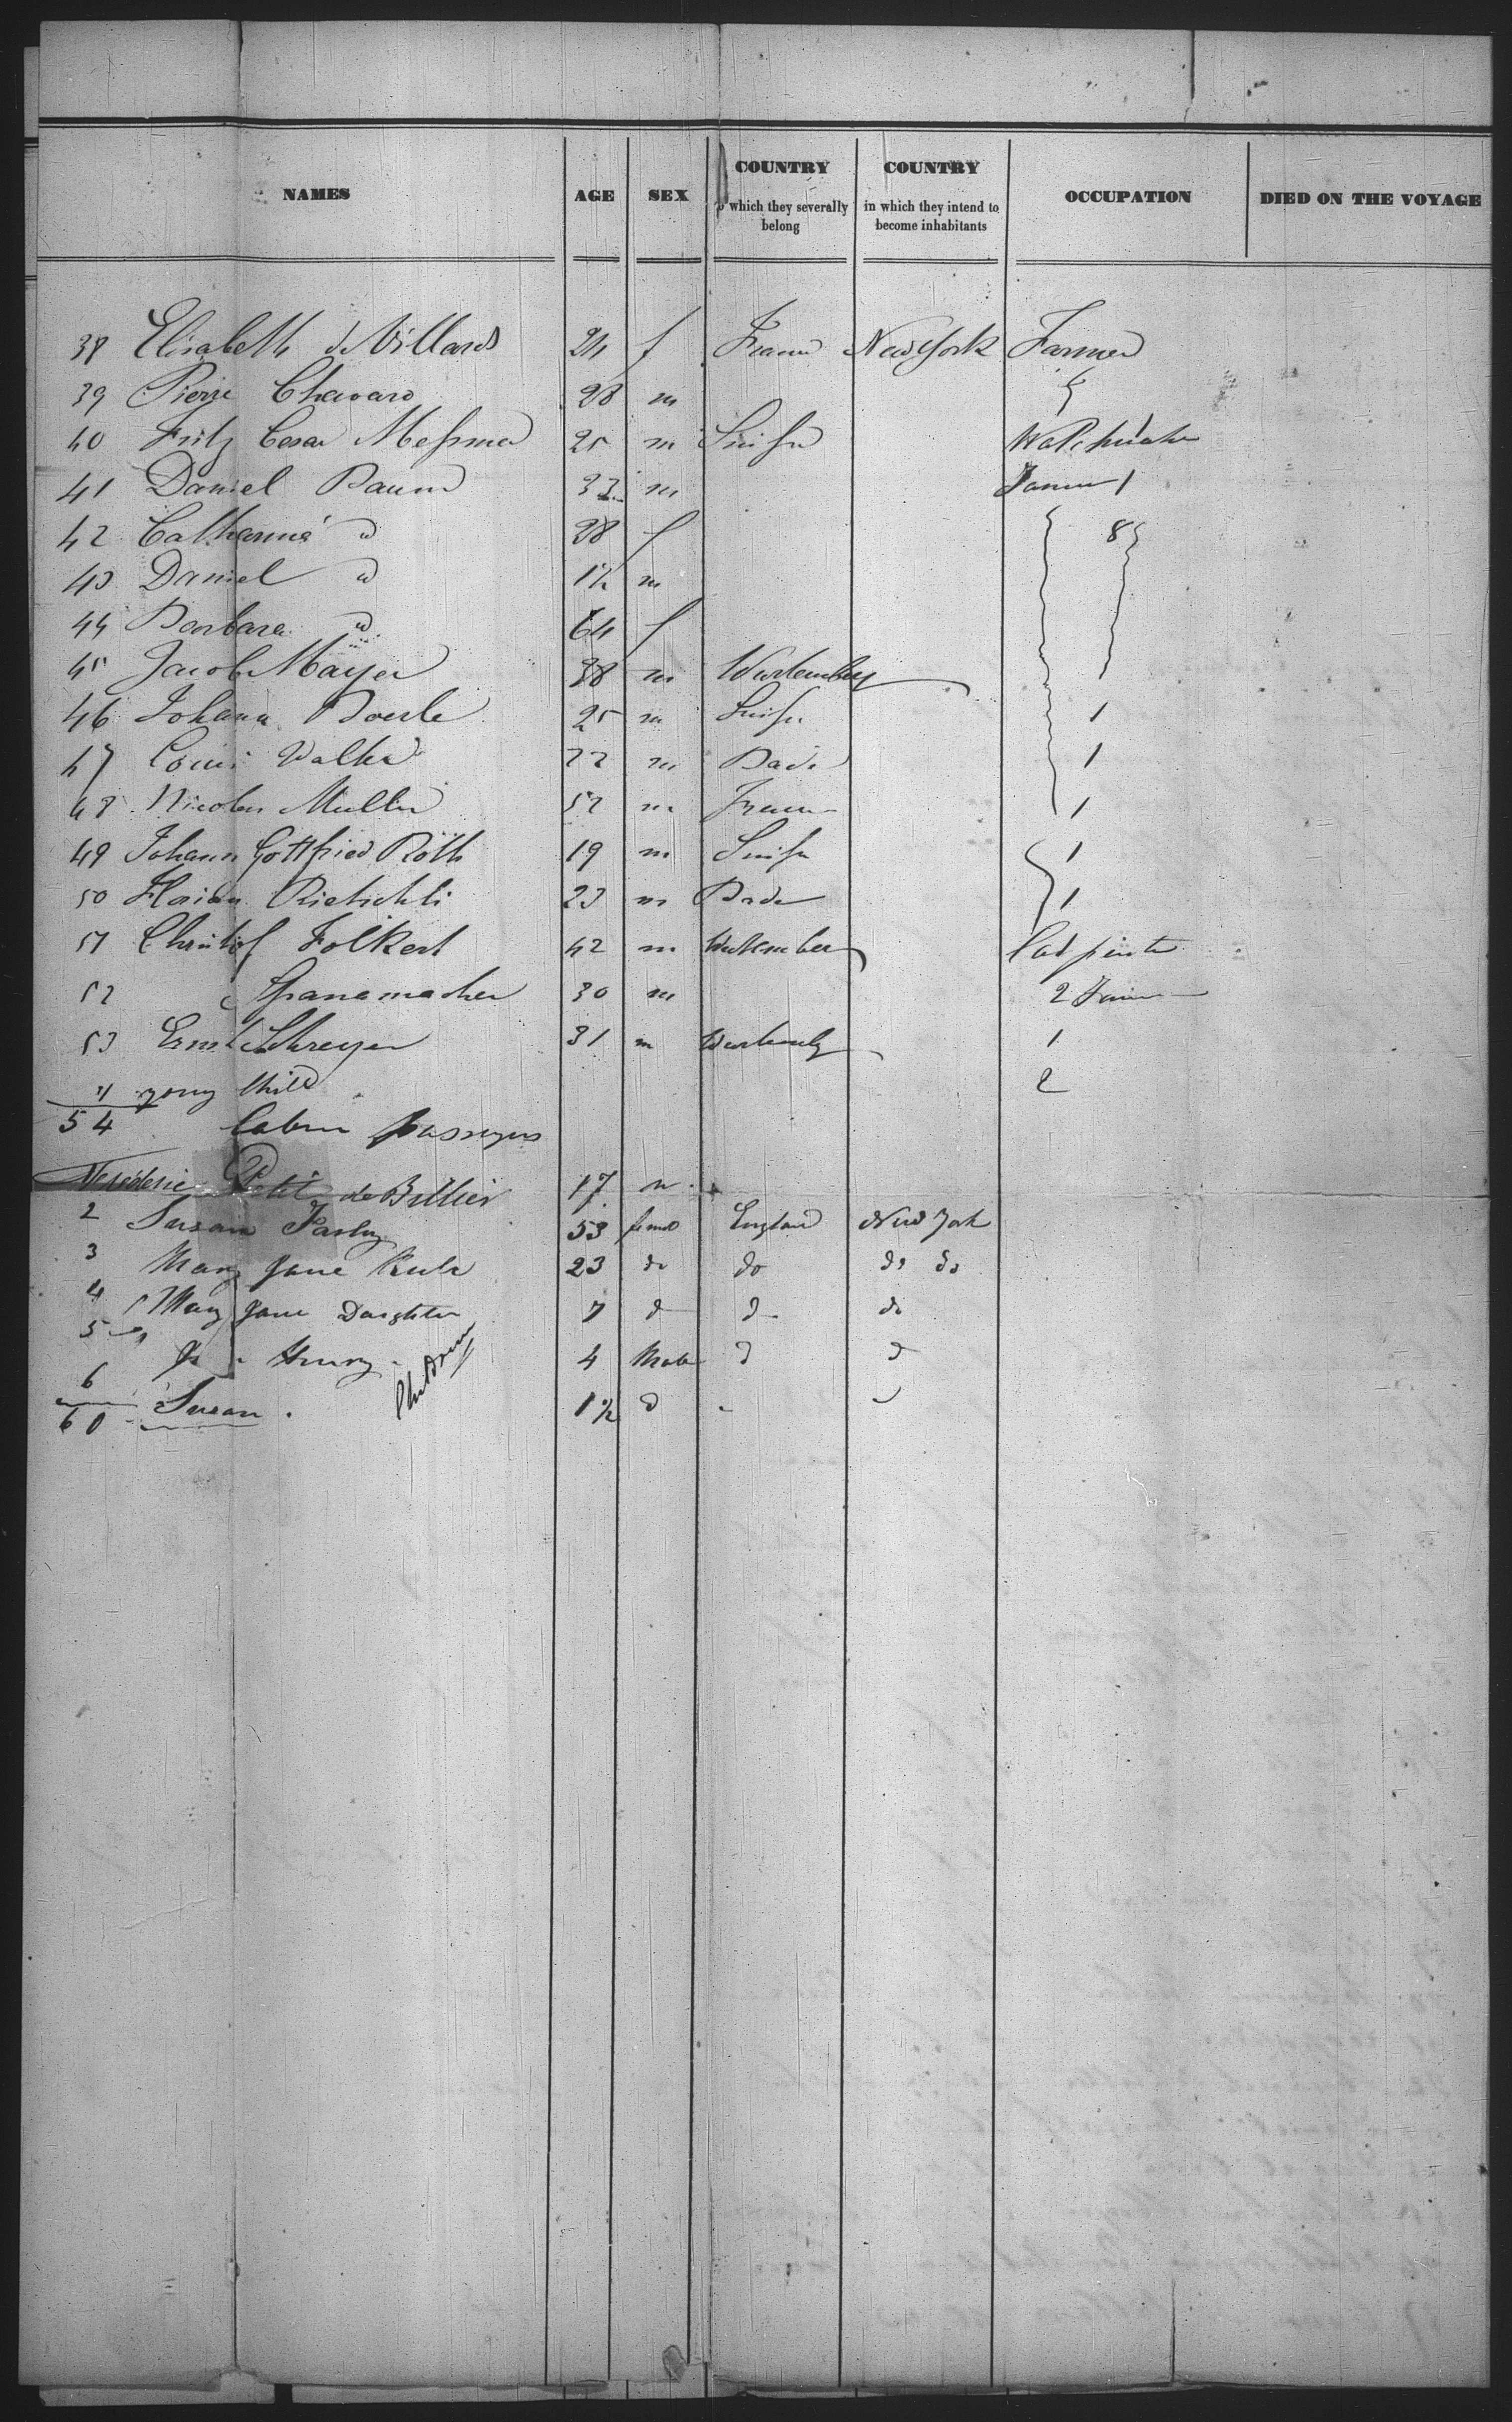 NAMES AGE SEX COUNTRY which they severally belong COUNTRY in which they intend to become inhabitants OCCUPATION DIED ON THE VOYAGE
38 Elisabeth de Villard 24 f France New York Farmer
39 Pierre Chavard 28 m
40 Fritz Cesar Messmer 25 m Suisse
41 Daniel Baum 33 m Farmer 1
42 Catharina d 28 f 8
43 Daniel d 1½ m
44 Barbara d 64 f
45 Jacob Mayer 38 m Wurtemberg
46 Johann Boesle 25 m Suisse 1
47 Louis Walker 22 m Bade 1
48 Nicolas Muller 52 m France 1
49 Johann Gottfried Röth 19 m Suisse 1
50 Florian Rietschli 23 m Bade 1
51 Christof Folkert 42 m Wurtemberg Carpenter
52 Spanamacher 30 m 2
53 Ernst Schreyer 31 m Wurtemberg 1
" yong Child 2
54 Cabin passengers
Petit de Billier 17 m
2 Susan 53 female England New York
3 Mary Jane 23 do do do do
4 Mary Jane Daughter 7 d d do
5 Henry 4 Male d d
6 Susan 1½ d
60
Children